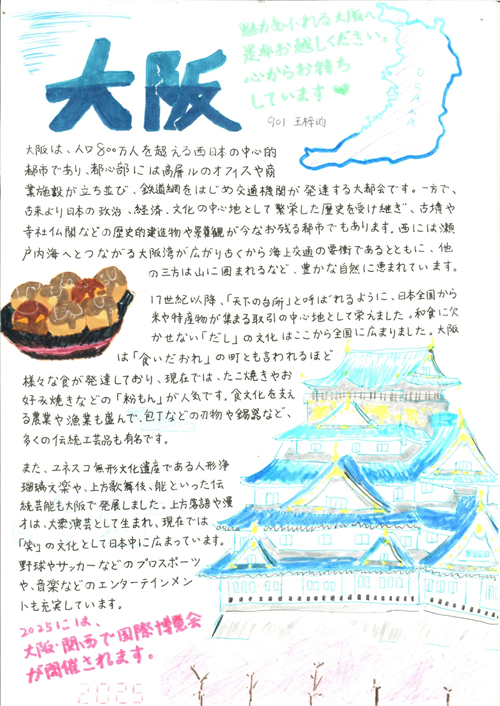 大阪
魅力あふれる大阪へ
是非お越しください。
心からお待ち
しています
OSAKA
901 王梓昀
大阪は、人口800万人を超える西日本の中心的
都市であり、都心部には高層ルのオフィスや商
業施設が立ち並び、鉄道網をはじめ交通機関が発達する大都会です。一方で、
古来より日本の政治、経済、文化の中心地として繁栄した歴史を受け継ぎ、古墳や
寺社仏閣などの歴史的建造物や景観が今なお残る都市でもあります。西には瀬
戸内海へとつながる大阪湾が広がり古くから海上交通の要衝であるとともに、他
の三方は山に囲まれるなど、豊かな自然に恵まれています。
17世紀以降、「天下の台所」と呼ばれるように、日本全国から
米や特産物が集まる取引の中心地として栄えました。和食に欠
かせない「だし」の文化はここから全国に広まりました。大阪
は「食いだおれ」の町ともきわれるほど
様々な食が発達しており、現在では、たこ焼きやお
好み焼きなどの「粉もん」が人気です。食文化をまえ
る農業や漁業も盛んで、包丁などの刃物や錫器など、
多くの伝統工芸品も有名です。
また、ユネスコ無形文化遺産である人形浄
瑠璃文楽や、上方歌舞伎、能といった伝
統芸能も大阪で発展しました。上方落語や漫
才は、大衆演芸として生まれ、現在では
「笑い」の文化として日本中に広まっています。
野球やサッカーなどのプロスポーツ
や、音楽などのエンターテインメン
トも充実しています。
2025には、
大阪・関西で国際博覧会
が開催されます。
2025